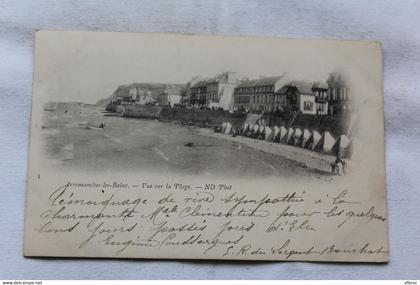 Arromanches-les-Bains. - Vue sur la Plage. - ND Phot
Témoignage de vive sympathie à la
charmante Mlle Clémentine pour les quelques
bons jours passés près d'Elle
Eugénie
S. R. du Sergent Bauchat
www.ebay.fr